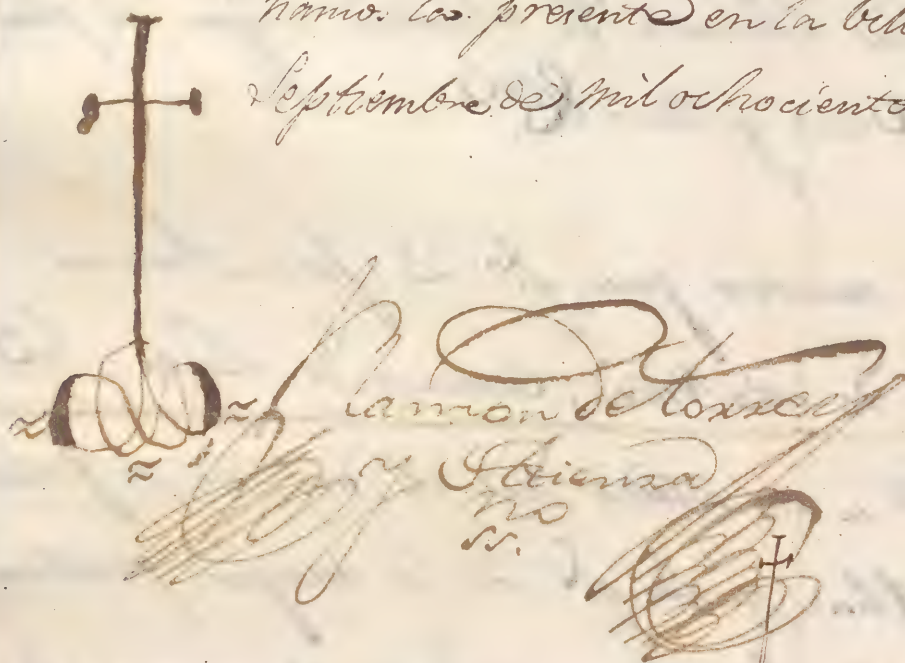 namos la presente en la vill
Septiembre de mil ochociento
Ramon de Torres
y Atienza
no
ss.